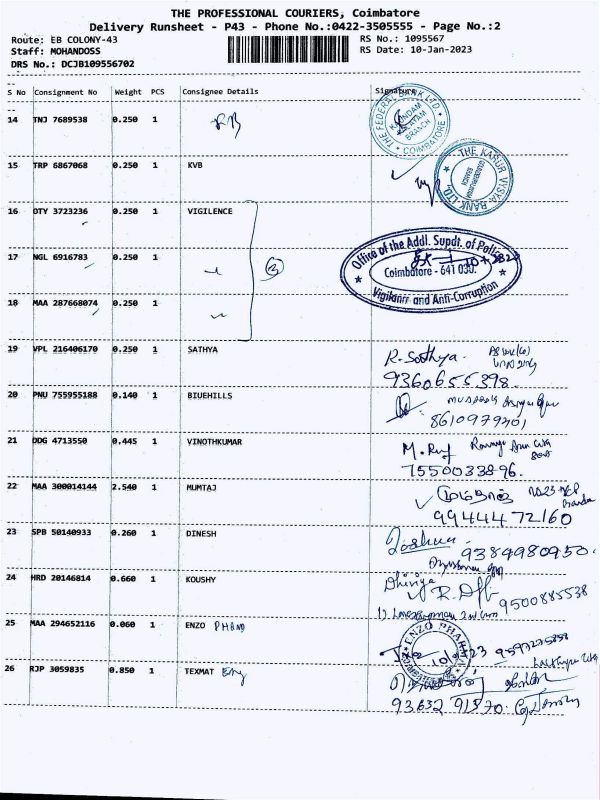 THE PROFESSIONAL COURIERS, Coimbatore
Delivery Runsheet - P43 - Phone No.:0422-3505555 - Page No.:2
Route: EB COLONY-43
Staff: MOHANDOSS
DRS No.: DCJB109556702
RS No.: 1095567
RS Date: 10-Jan-2023
S No Consignment No Weight PCS Consignee Details Signature
14 TNJ 7689538 0.250 1
THE FEDERAL BANK LTD. BRANCH COIMBATORE
15 TRP 6867068 0.250 1 KVB
THE KARUR VYSYA BANK LTD.
16 OTY 3723236 0.250 1 VIGILENCE
17 NGL 6916783 0.250 1
3
Office of the Addl. Supdt. of Police
Coimbatore - 641 030.
Vigilance and Anti-Corruption
18 MAA 287668074 0.250 1
19 VPL 216406170 0.250 1 SATHYA R. Sathya.
9360655398.
20 PNU 755955188 0.140 1 BIUEHILLS
8610979301
21 ODG 4713550 0.445 1 VINOTHKUMAR
7550033896.
22 MAA 300014144 2.540 1 MUMTAJ மும்தாஜ்
9944472160
23 SPB 50140933 0.260 1 DINESH Joshua
9384980950.
24 HRD 20146814 0.660 1 KOUSHY
9500885538
25 MAA 294652116 0.060 1 ENZO
ENZO PHARMA
26 RJP 3059835 0.850 1 TEXMAT Eng
93632 91370.